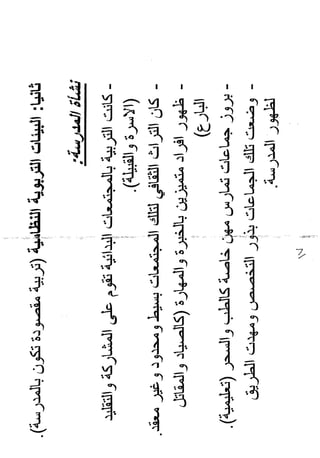 ثانيا: البيئات التربوية النظامية (تربية مقصودة تكون بالمدرسة).
نشأة المدرسة:
- كانت التربية بالمجتمعات البدائية تقوم على المشاركة والتقليد
(الاسرة والقبيلة).
- كان التراث الثقافي لتلك المجتمعات بسيط ومحدود وغير معقد.
- ظهور افراد متميزين بالخبرة والمهارة (كالصياد والمقاتل
البارع)
- بروز جماعات تمارس مهن خاصة كالطب والسحر (تعليمية).
- وضعت تلك الجماعات بذور التخصص ومهدت الطريق
لظهور المدرسة.